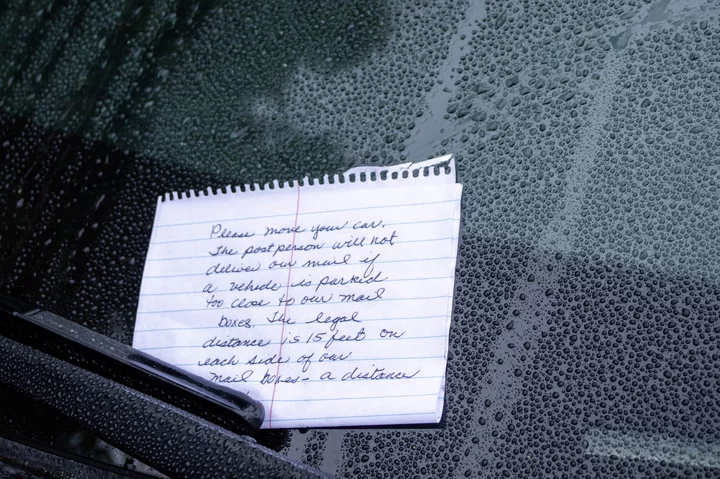 Please move your car.
The postperson will not
deliver our mail if
a vehicle is parked
too close to our mail
boxes. The legal
distance is 15 feet on
each side of our
mail boxes - a distance